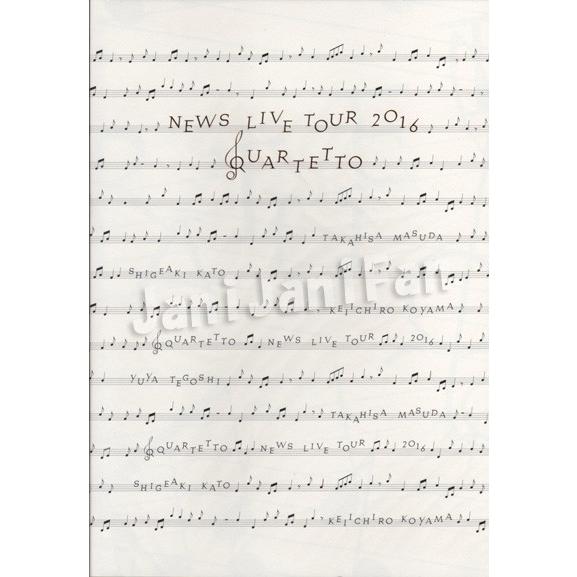 NEWS LIVE TOUR 2016
QUARTETTO
TAKAHISA MASUDA
SHIGEAKI KATO
Jani Jani Fan
KEIICHIRO KOYAMA
QUARTETTO NEWS LIVE TOUR 2016
YUYA TEGOSHI
TAKAHISA MASUDA
QUARTETTO NEWS LIVE TOUR 2016
SHIGEAKI KATO
KEIICHIRO KOYAMA